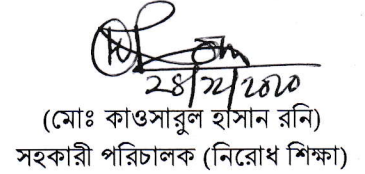 ২৪/১২/২০২০
(মোঃ কাওসারুল হাসান রনি)
সহকারী পরিচালক (নিরোধ শিক্ষা)